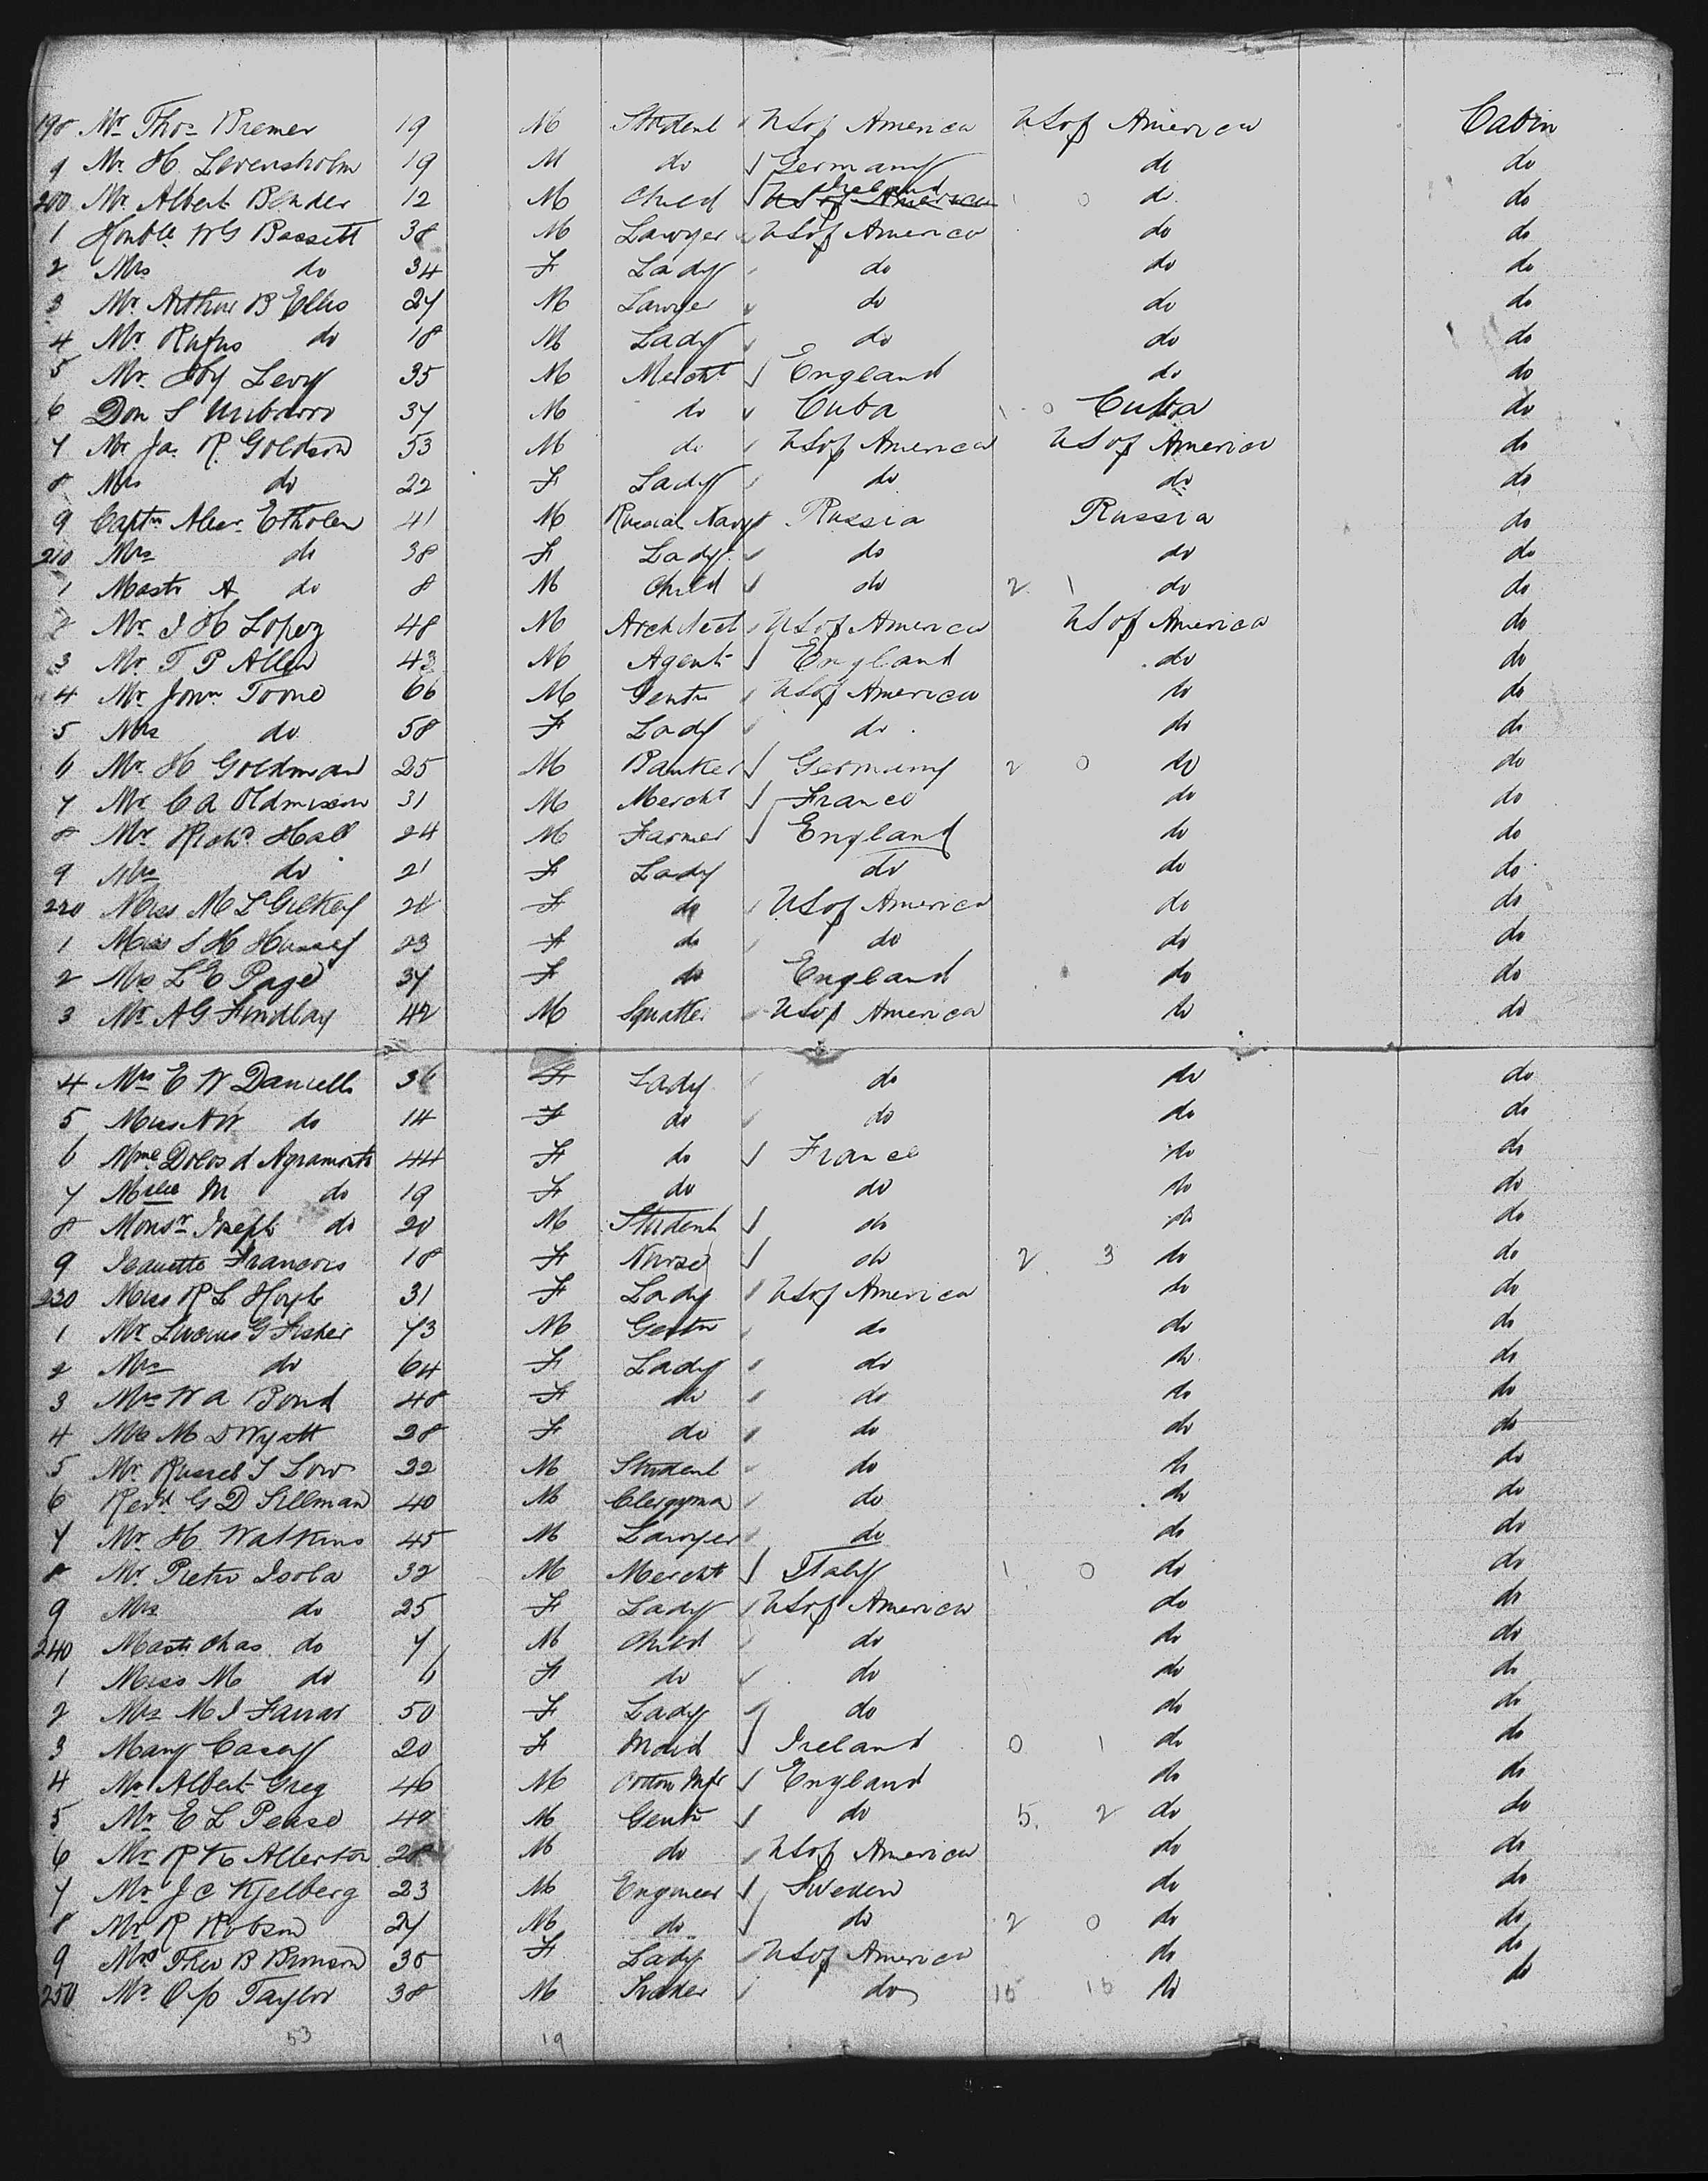 198 Mr Thos Bremer 19 M Student US of America US of America Cabin
9 Mr H Levensholm 19 M do Germany do do
200 Mr Albert Bender 12 M Child Ireland US of America 1 0 do do
1 Honble W G Bassett 38 M Lawyer US of America do do
2 Mrs do 34 F Lady do do do
3 Mr Arthur B Ellis 27 M Lawyer do do do
4 Mr Rufus do 18 M Lady do do do
5 Mr Hy Levy 35 M Mercht England do do
6 Don S 37 M do Cuba 1 0 Cuba do
7 Mr Ja. R. Goldson 53 M do US of America US of America do
8 Mrs do 22 F Lady do do do
9 Captn Alexr Etholen 41 M Russian Navy Russia Russia do
210 Mrs do 38 F Lady do do do
1 Mastr A do 8 M Child do 2 1 do do
2 Mr J H Lopez 48 M Architect US of America US of America do
3 Mr T P Allen 43 M Agent England do do
4 Mr Jonn Toone 66 M Gentn US of America do do
5 Mrs do 58 F Lady do do do
6 Mr H Goldman 25 M Banker Germany 2 0 do do
7 Mr C A 31 M Mercht France do do
8 Mr Richd Hall 24 M Farmer England do do
9 Mrs do 21 F Lady do do do
220 Miss M L Gilkey F do US of America do do
1 Miss S H Hussey 23 F do do do do
2 Mrs L E Page 37 F do England do do
3 Mr A G Findlay 42 M Squatter US of America do do
4 Mrs E W Daniells 36 F Lady do do do
5 Miss N W do 14 F do do do do
6 Mme Dolos d Agramonte 44 F do France do do
7 Mlle M do 19 F do do do do
8 Monsr Joseph do 20 M Student do do do
9 Jeanette Francois 18 F Nurse do 2 3 do do
230 Miss R L Hoyle 31 F Lady US of America do do
1 Mr Lucius G Fisher 73 M Gentn do do do
2 Mrs do 64 F Lady do do do
3 Mrs W A Bond 48 F do do do do
4 Mrs M D Wyatt 28 F do do do do
5 Mr Russel S Low 22 M Student do do do
6 Revd G D Sillman 40 M Clergyma do do do
7 Mr H Watkins 45 M Lawyer do do do
8 Mr Pietro Isola 32 M Mercht Italy 1 0 do do
9 Mrs do 25 F Lady US of America do do
240 Mastr Chas do 7 M Child do do do
1 Miss M do 6 F do do do do
2 Mrs M J Farrar 50 F Lady do do do
3 Mary Casey 20 F Maid Ireland 0 1 do do
4 Mr Albert Greg 46 M Cotton Mfr England do do
5 Mr E L Pease 42 M Gentn do 5 2 do do
6 Mr R H Allerton 28 M do US of America do do
7 Mr J C Kjelberg 23 M Engineer Sweden do do
8 Mr R Robson 27 M do do 2 0 do do
9 Mrs Theo B Bronson 35 F Lady US of America do do
250 Mr O/o Taylor 38 M do do do
53 19